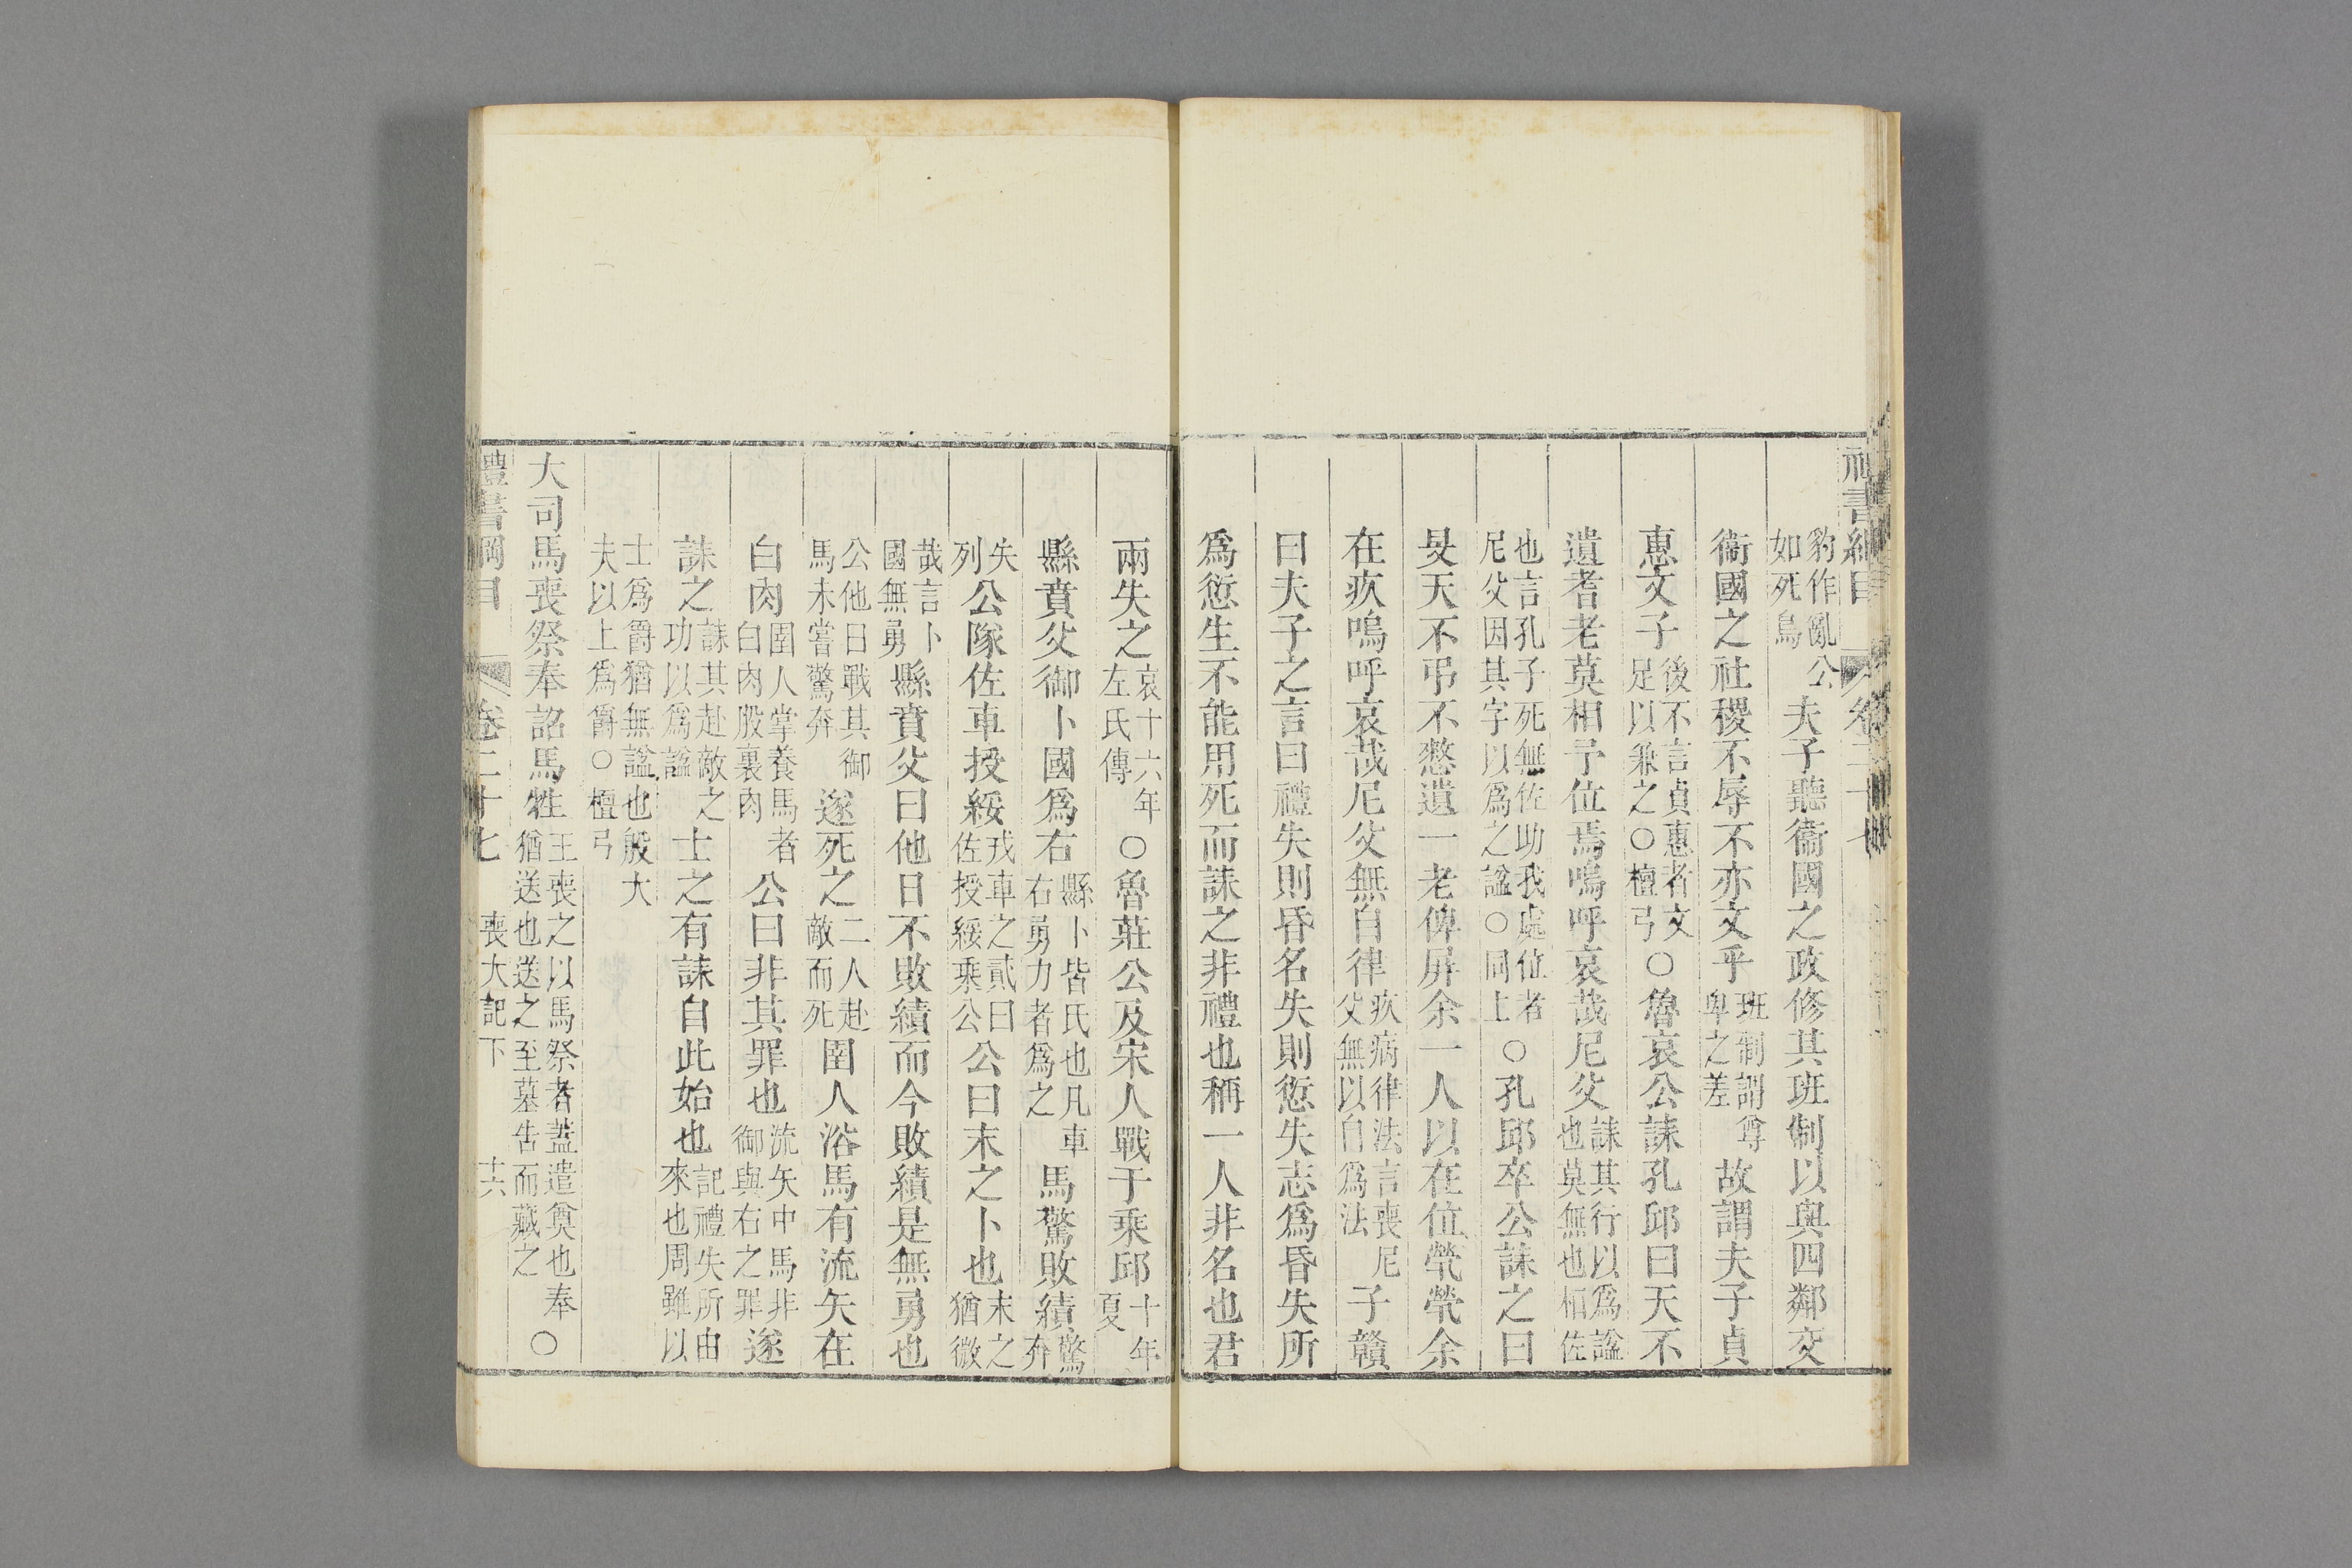 豹作亂公如死鳥夫子聽衞國之政修其班制以與四鄰交
衞國之社稷不辱不亦文乎班制謂尊卑之差故謂夫子貞
惠文子後不言貞惠者文足以兼之○檀弓○魯哀公誄孔邱曰天不
遺耆老莫相予位焉嗚呼哀哉尼父誄其行以爲諡也莫無也相佐
也言孔子死無佐助我處位者尼父因其字以爲之諡○同上○孔邱卒公誄之曰
旻天不弔不憖遺一老俾屏余一人以在位煢煢余
在疚嗚呼哀哉尼父無自律疚病律法言喪尼父無以自爲法子贛
曰夫子之言曰禮失則昏名失則愆失志爲昏失所
爲愆生不能用死而誄之非禮也稱一人非名也君
兩失之哀十六年左氏傳○魯莊公及宋人戰于乘邱十年夏
縣賁父御卜國爲右縣卜皆氏也凡車右勇力者爲之馬驚敗績驚奔
失列公隊佐車授綏戎車之貳曰佐授綏乘公公曰末之卜也末之猶微
哉言卜國無勇縣賁父曰他日不敗績而今敗績是無勇也
公他日戰其御馬未嘗驚奔遂死之二人赴敵而死圉人浴馬有流矢在
白肉圉人掌養馬者白肉股裏肉公曰非其罪也流矢中馬非御與右之罪遂
誄之誄其赴敵之功以爲諡士之有誄自此始也記禮失所由來也周雖以
士爲爵猶無諡也殷大夫以上爲爵○檀弓
大司馬喪祭奉詔馬牲王喪之以馬祭者蓋遣奠也奉猶送也送之至墓告而藏之○
禮書綱目 卷二十七 喪大記下 十六